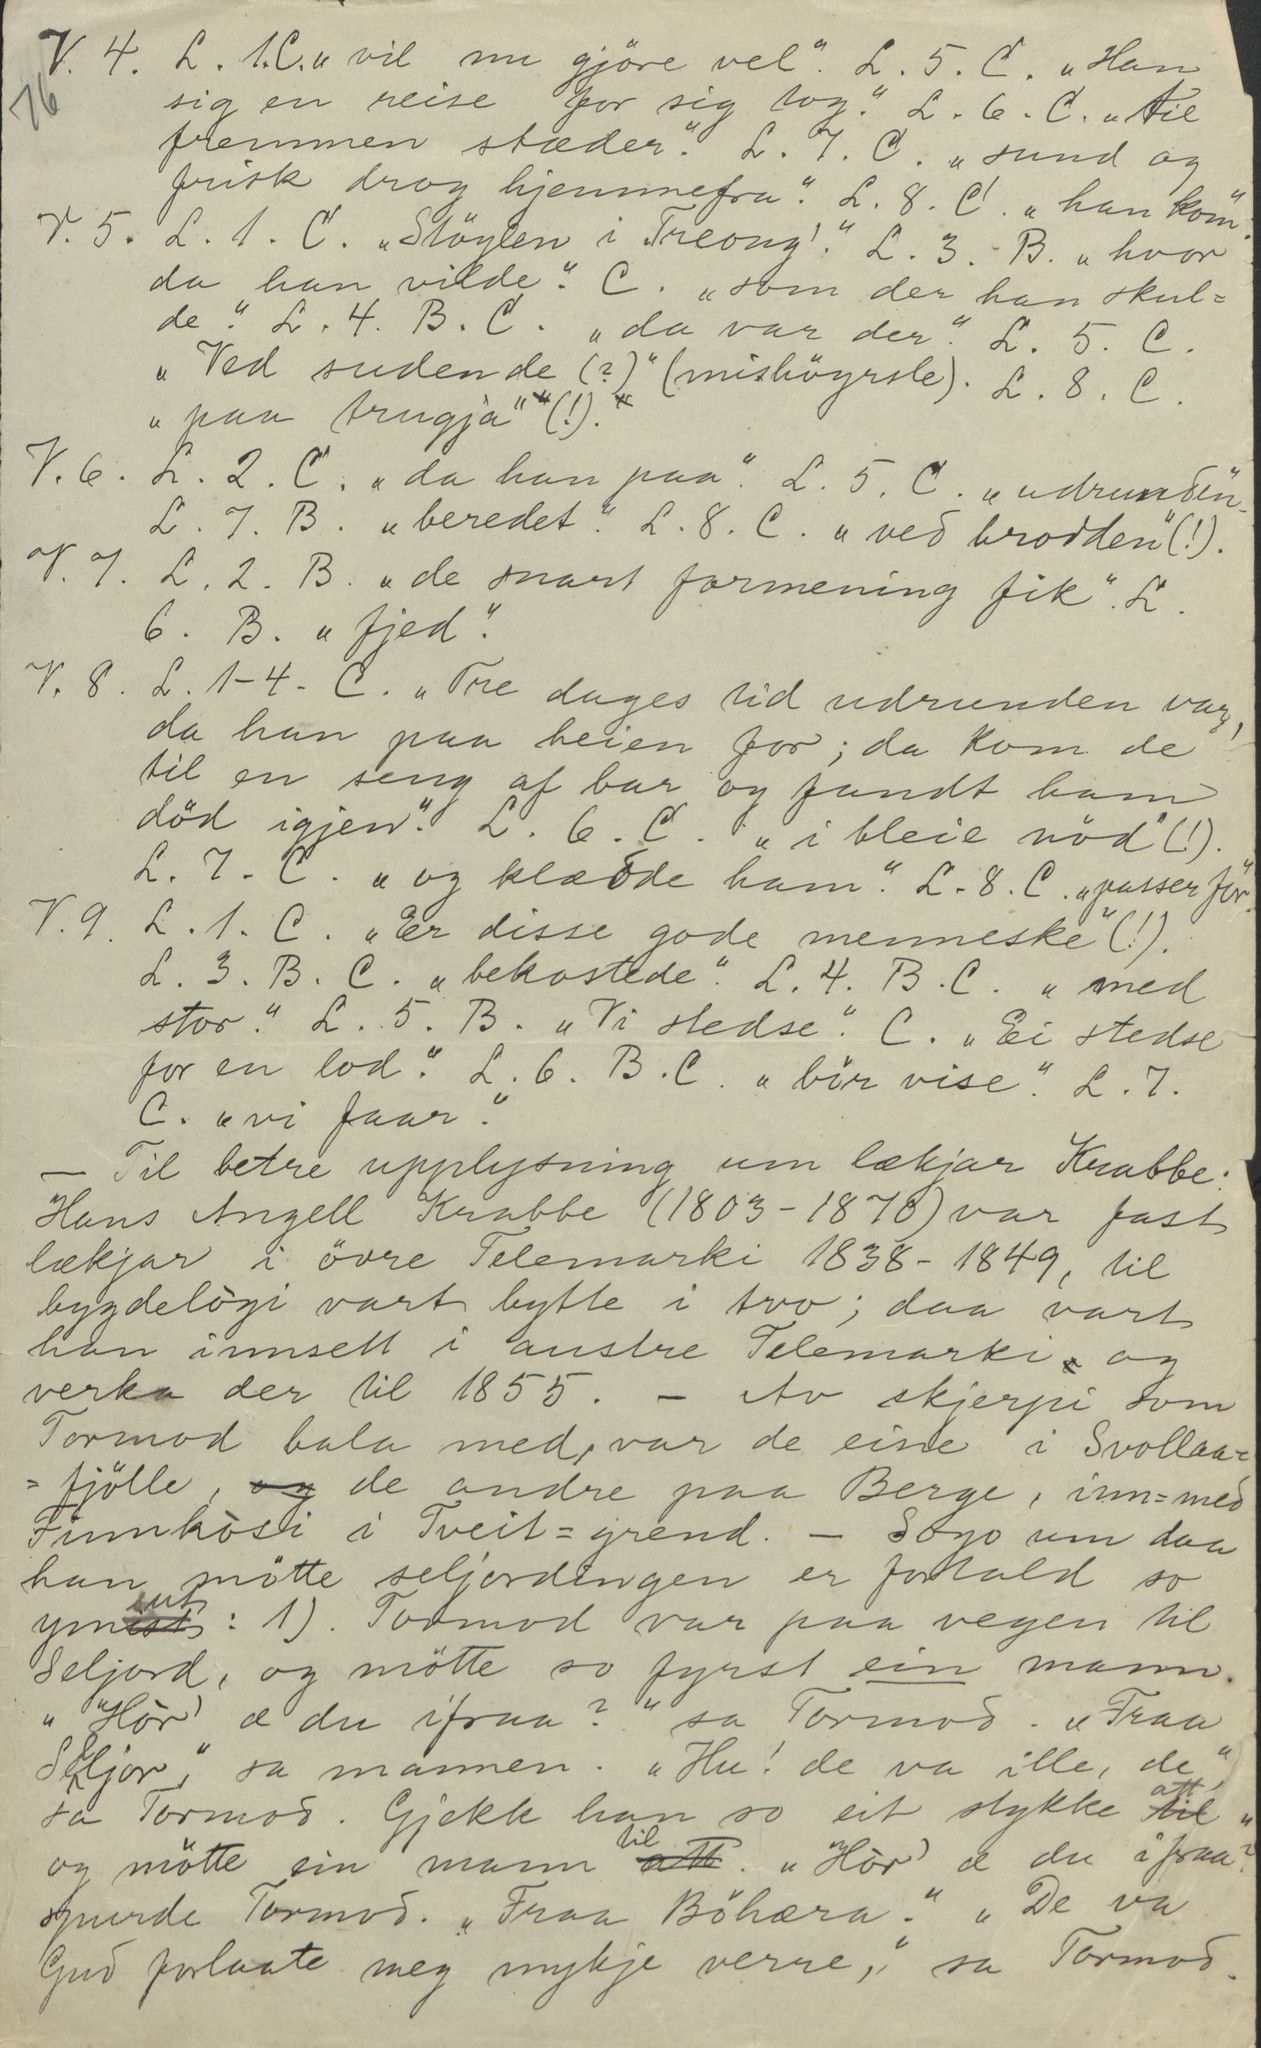 V. 4. L. 1. C. „vil nu gjöre vel“. L. 5. C. „Han
76
sig en reise for sig tog.“ L. 6. C. „til
fremmen stæder.“ L. 7. C. „sund og
frisk drog hjemmefra“. L. 8. C. „han kom“.
V. 5. L. 1. C. „Stöylen i Treong'.“ L. 3. B. „hvor
da han vilde“. C. „som der han skul=
de“. L. 4. B. C. „da var der“. L. 5. C.
„Ved sudende (?)“ (mishöyrsle). L. 8. C.
„paa trugja“ (!).
V. 6. L. 2. C. „da han paa“. L. 5. C. „udrunden“.
L. 7. B. „beredet“. L. 8. C. „ved brodden“ (!).
V. 7. L. 2. B. „de snart formening fik“. L.
6. B. „fjed“.
V. 8. L. 1-4. C. „Tre dages tid udrunden var,
da han paa heien for; da kom de
til en seng af bar og fandt ham
död igjen“. L. 6. C. „i bleie nöd“ (!).
L. 7. C. „og klædde ham“. L. 8. C. „passer för“.
V. 9. L. 1. C. „Er disse gode menneske“ (!).
L. 3. B. C. „bekostede“. L. 4. B. C. „med
stor“. L. 5. B. „Vi stedse“. C. „Ei stedse
for en lod“. L. 6. B. C. „bör vise“. L. 7.
C. „vi faar“.
— Til betre upplysning um lækjar Krabbe:
Hans Angell Krabbe (1803-1878) var fast
lækjar i övre Telemarki 1838-1849, til
bygdelògi vart bytte i tvo; daa vart
han innsett i austre Telemarki og
verka der til 1855. — Av skjerpi som
Tormod bala med, var de eine i Svollaa=
=fjölle, og de andre paa Berge, inn=med
Finnkòsi i Tveit=grend. — Sogo um daa
han mötte seljordingen er fortald so
ymist: 1). Tormod var paa vegen til
Seljord, og mötte so fyrst ein mann.
„Hòr' æ du ifraa?“ sa Tormod. „Fraa
Seljor,“ sa mannen. „Hu! de va ille, de“,
sa Tormod. Gjekk han so eit stykke att til
og mötte ein mann til att. „Hòr' æ du ifraa?“
spurde Tormod. „Fraa Böhæra.“ „De va
Gud forlaate meg mykje verre,“ sa Tormod.